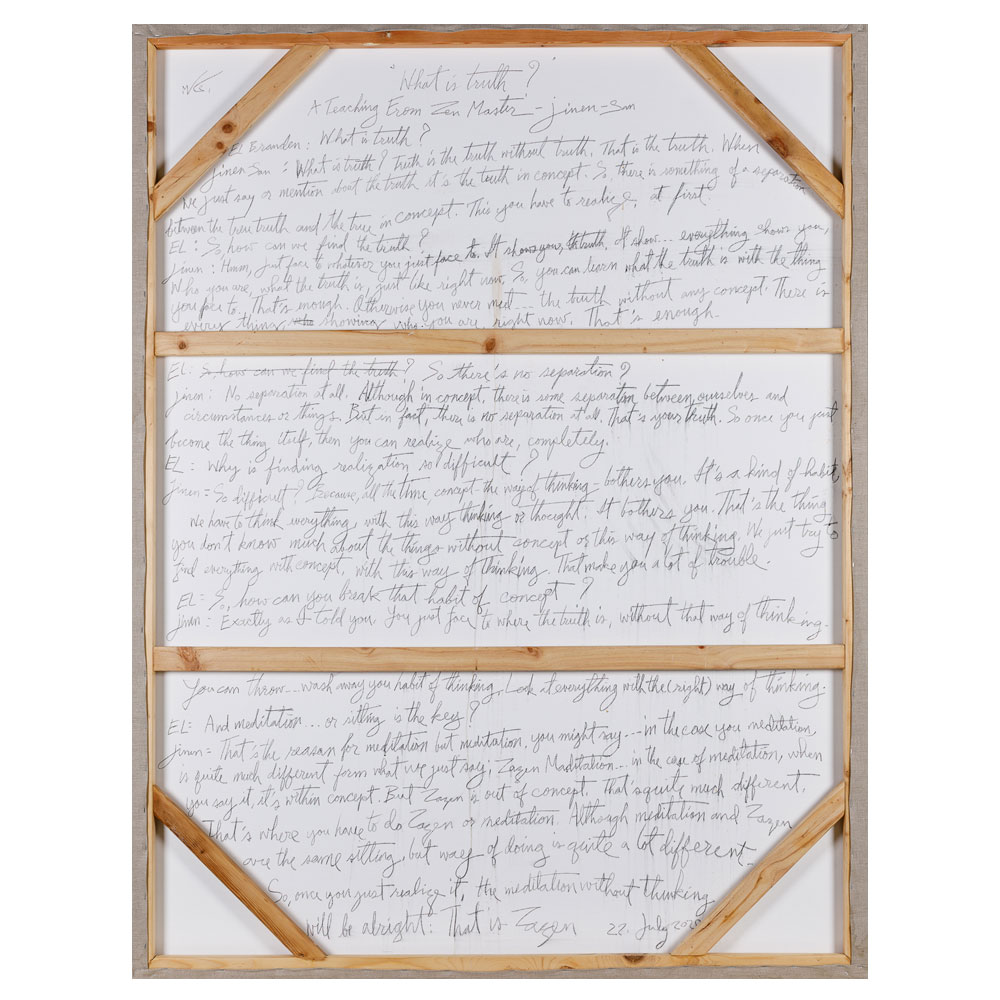 "What is truth?"
A Teaching From Zen Master - jinen-San
EL Branden: What is truth?
jinen San: What is truth? truth is the truth without truth. That is the truth. When
We just say or mention about the truth it's the truth in concept. So, there is something of a separation
between the true truth and the true in concept. This you have to realize, at first.
EL: So, how can we find the truth?
jinen: Hmm, just face to whatever you just face to. It shows you, the truth. It show... everything shows you,
Who you are, what the truth is, just like right now. So, you can learn what the truth is with the thing
you face to. That's enough. Otherwise you never meet... the truth without any concept. There is
every thing showing who you are right now. That's enough-
EL: So, how can we find the truth? So there's no separation?
jinen: No separation at all. Although in concept, there is some separation between ourselves and
circumstances or things. But in fact, there is no separation at all. That's your truth. So once you just
become the thing stuff, then you can realize who are, completely.
EL: Why is finding realization so difficult?
jinen = So difficult? Because, all the time concept-the way of thinking-bothers you. It's a kind of habit,
We have to think everything, with this way thinking or thought. It bothers you. That's the thing
you don't know much about the things without concept or this way of thinking. We just try to
find everything with concept, with this way of thinking. That make you a lot of trouble.
EL = So, how can you break that habit of concept?
jinen: Exactly as I told you You just face to where the truth is, without that way of thinking-
You can throw... wash away you habit of thinking. Look at everything with the (right) way of thinking.
EL: And meditation... or sitting is the key?
jinen = That's the reason for meditation but meditation, you might say... in the case you meditation,
is quite much different form what we just say, Zazen Maditation... in the case of meditation, when
you say it, it's within concept. But Zazen is out of concept. That's quite much different.
That's where you have to do Zazen or meditation. Although meditation and Zazen
are the same sitting, but way of doing is quite a lot different-
So, once you just realize it, the meditation without thinking
will be alright. That is Zazen 22. July